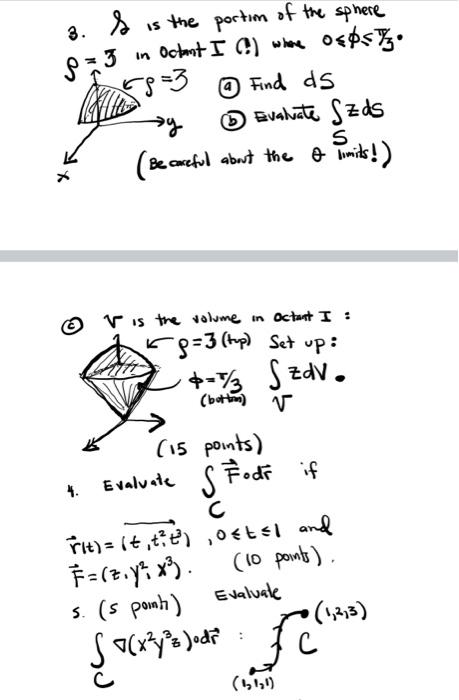 3. S is the portion of the sphere
ρ = 3 in Octant I (!) where 0≤φ≤π/3.
ρ=3 (a) Find dS
y (b) Evaluate ∫_S z dS
x (Be careful about the θ limits!)
(c) V is the volume in Octant I :
ρ=3 (top) Set up:
φ=π/3 ∫_V z dV.
(bottom)
(15 points)
4. Evaluate ∫_C F⃗∘dr⃗ if
r⃗(t) = (t, t², t³), 0≤t≤1 and
F⃗ = (z, y², x³). (10 points).
5. (5 points) Evaluate
∫_C ∇(x²y³z)∘dr⃗ : C (1,2,3)
(1,1,1)